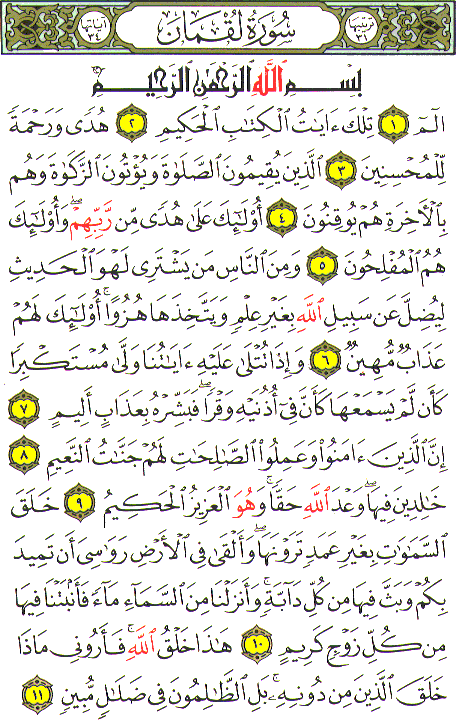 سُورَةُ لُقْمَانَ
بِسْمِ اللَّهِ الرَّحْمَٰنِ الرَّحِيمِ
الٓمٓ ١ تِلْكَ ءَايَٰتُ الْكِتَٰبِ الْحَكِيمِ ٢ هُدًى وَرَحْمَةً
لِّلْمُحْسِنِينَ ٣ الَّذِينَ يُقِيمُونَ الصَّلَوٰةَ وَيُؤْتُونَ الزَّكَوٰةَ وَهُم
بِالْأَخِرَةِ هُمْ يُوقِنُونَ ٤ أُوْلَٰٓئِكَ عَلَىٰ هُدًى مِّن رَّبِّهِمْ ۖ وَأُوْلَٰٓئِكَ
هُمُ الْمُفْلِحُونَ ٥ وَمِنَ النَّاسِ مَن يَشْتَرِى لَهْوَ الْحَدِيثِ
لِيُضِلَّ عَن سَبِيلِ اللَّهِ بِغَيْرِ عِلْمٍ وَيَتَّخِذَهَا هُزُوًا ۚ أُوْلَٰٓئِكَ لَهُمْ
عَذَابٌ مُّهِينٌ ٦ وَإِذَا تُتْلَىٰ عَلَيْهِ ءَايَٰتُنَا وَلَّىٰ مُسْتَكْبِرًا
كَأَن لَّمْ يَسْمَعْهَا كَأَنَّ فِىٓ أُذُنَيْهِ وَقْرًا ۖ فَبَشِّرْهُ بِعَذَابٍ أَلِيمٍ ٧
إِنَّ الَّذِينَ ءَامَنُوا۟ وَعَمِلُوا۟ الصَّٰلِحَٰتِ لَهُمْ جَنَّٰتُ النَّعِيمِ ٨
خَٰلِدِينَ فِيهَا ۖ وَعْدَ اللَّهِ حَقًّا ۚ وَهُوَ الْعَزِيزُ الْحَكِيمُ ٩ خَلَقَ
السَّمَٰوَٰتِ بِغَيْرِ عَمَدٍ تَرَوْنَهَا ۖ وَأَلْقَىٰ فِى الْأَرْضِ رَوَٰسِىَ أَن تَمِيدَ
بِكُمْ وَبَثَّ فِيهَا مِن كُلِّ دَآبَّةٍ ۚ وَأَنزَلْنَا مِنَ السَّمَآءِ مَآءً فَأَنۢبَتْنَا فِيهَا
مِن كُلِّ زَوْجٍ كَرِيمٍ ١٠ هَٰذَا خَلْقُ اللَّهِ فَأَرُونِى مَاذَا
خَلَقَ الَّذِينَ مِن دُونِهِۦ ۚ بَلِ الظَّٰلِمُونَ فِى ضَلَٰلٍ مُّبِينٍ ١١